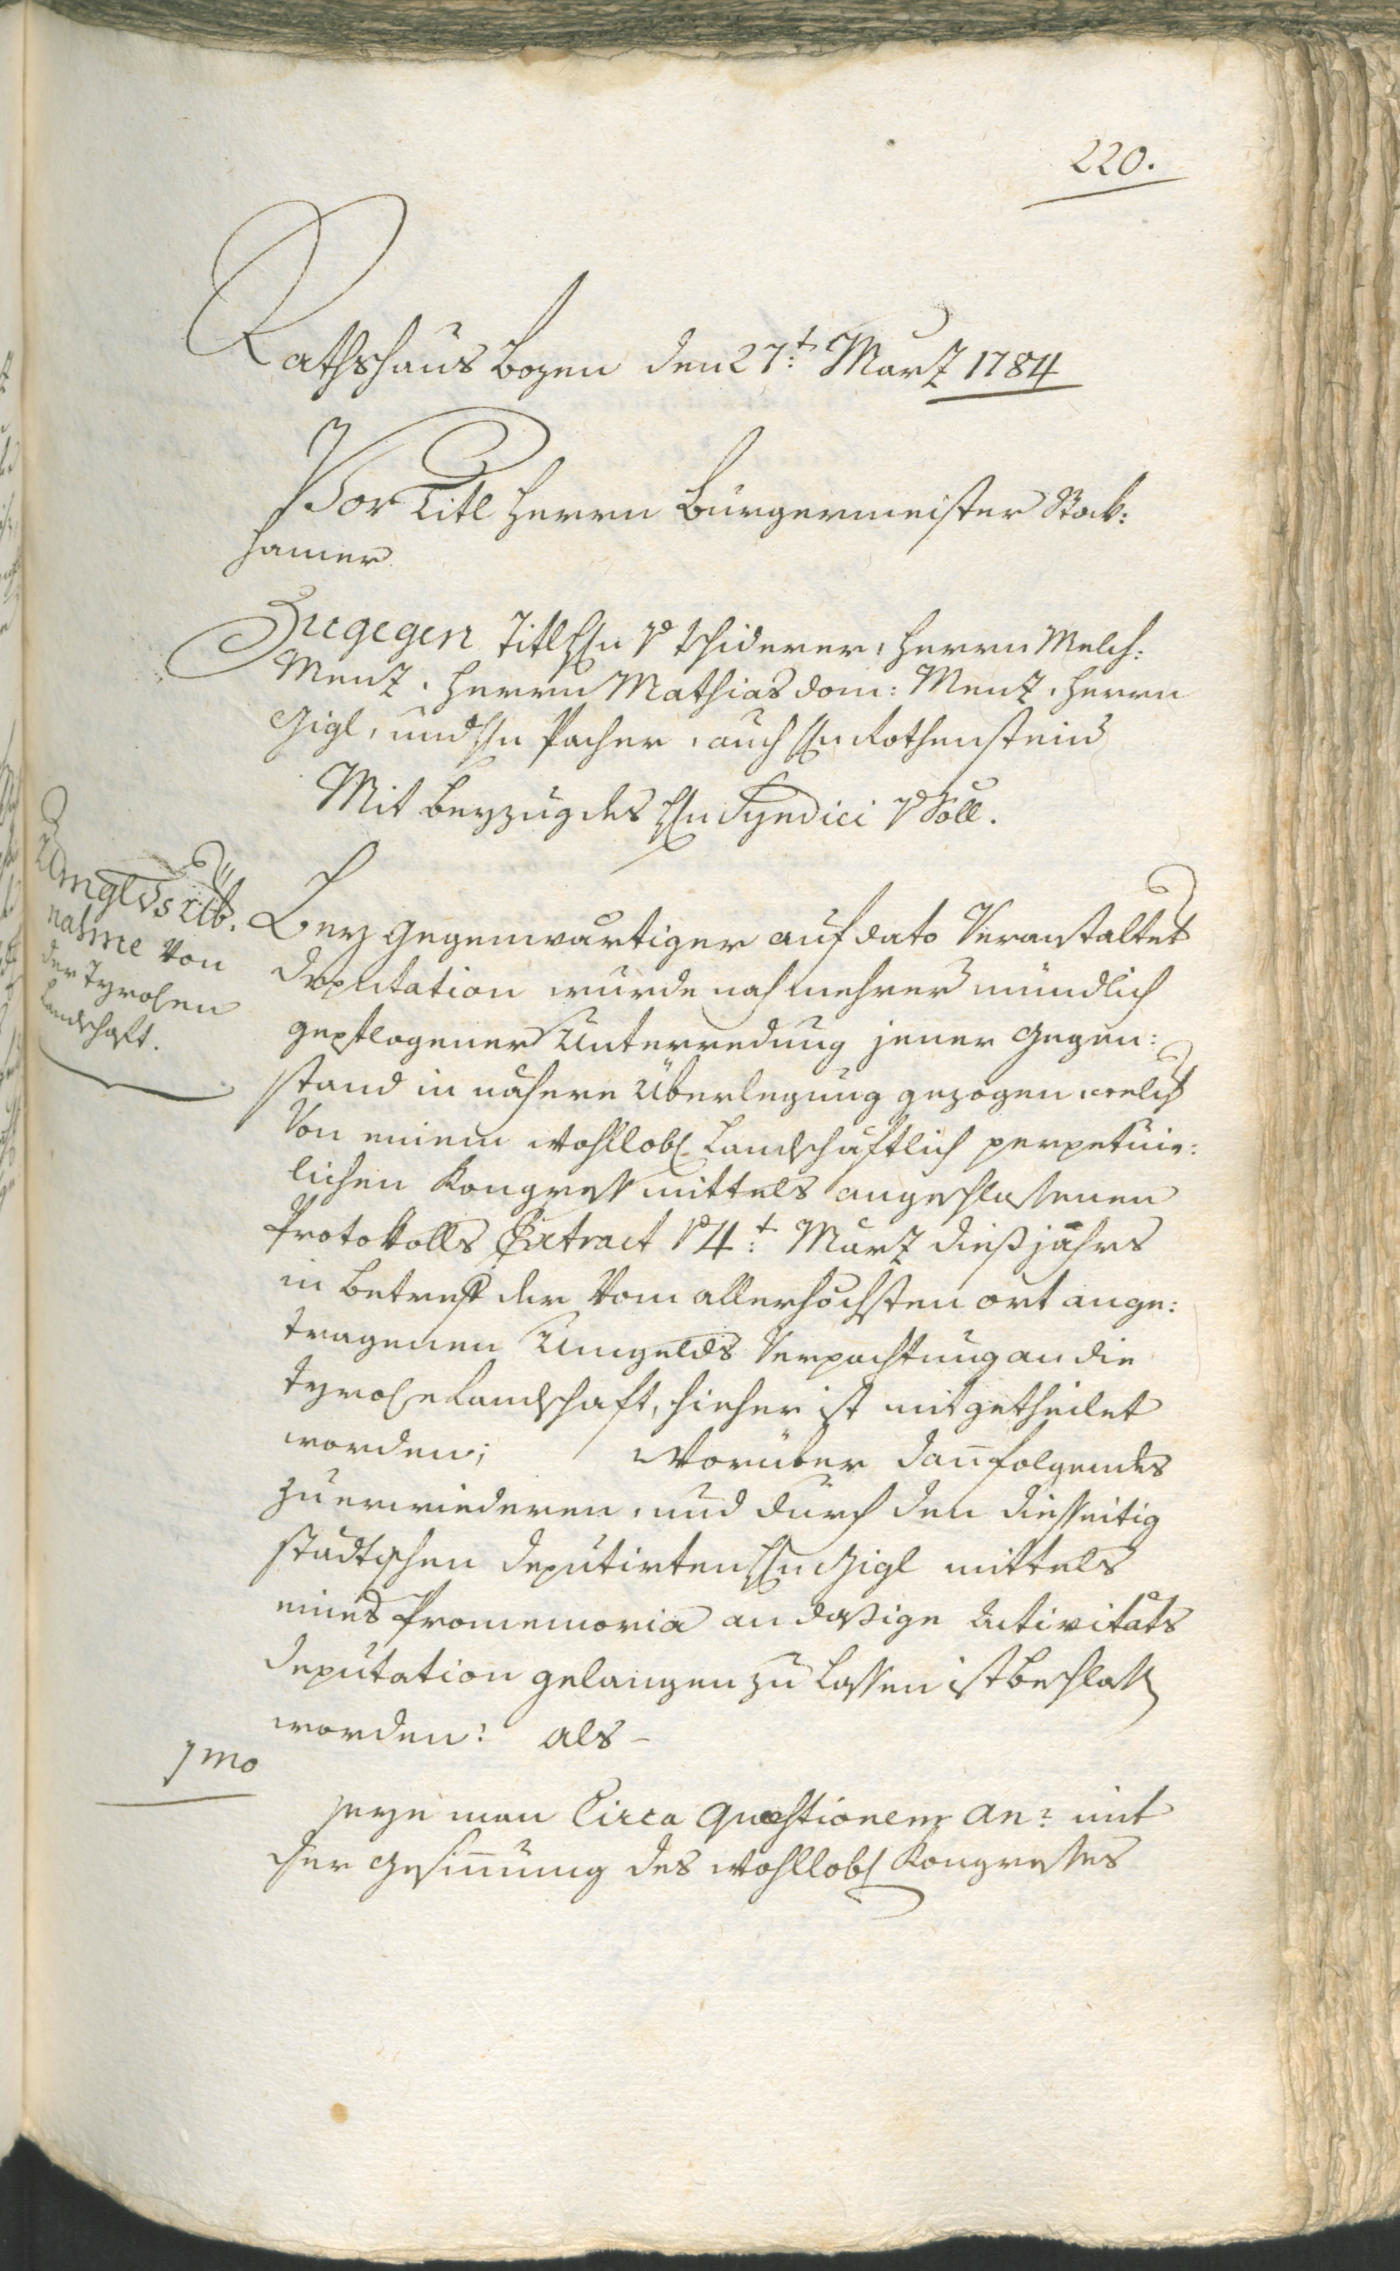 220.
Rathshaus Bozen den 27:t Marz 1784
Vor Titl Herrn Bürgermeister Stok:
hamer
Zugegen Titl Hn v Tschiderer, Herrn Melch:
Menz, Herrn Mathias Dom: Menz, Herrn
Gigl, und Hn Pacher, auch Hn Rothenstein
Mit Beyzug des Hn Syndici v Söll.
Umglds Üb.
nahme von
der Tyrolen
Landschaft.
Bey gegenwärtiger auf dato Veranstalteter
Deputation wurde nach mehrer mündlich
gepflogener Unterredung jener Gegen:
stand in nähere Überlegung gezogen, welcher
Von einem wohllobl Landschäftlich perpetuir:
lichen Kongress mittels angeschlossenen
Protokolls Extract v 4:t Marz dieß jahrs
in Betreff der Vom allerhöchsten ort ange:
tragenen Umgelds Verpachtung an die
Tyrol e Landschaft, hieher ist mitgetheilet
worden; Worüber dan folgendes
zu erwiederen, und durch den diesseitig
städtischen Deputirten Hn Gigl mittels
eines Promemoria an dasige Activitäts
Deputation gelangen zu lassen ist beschlossen
worden: als -
1mo
seye man Circa Quaestionem An? mit
der Gesinnung des wohllobl Kongresses